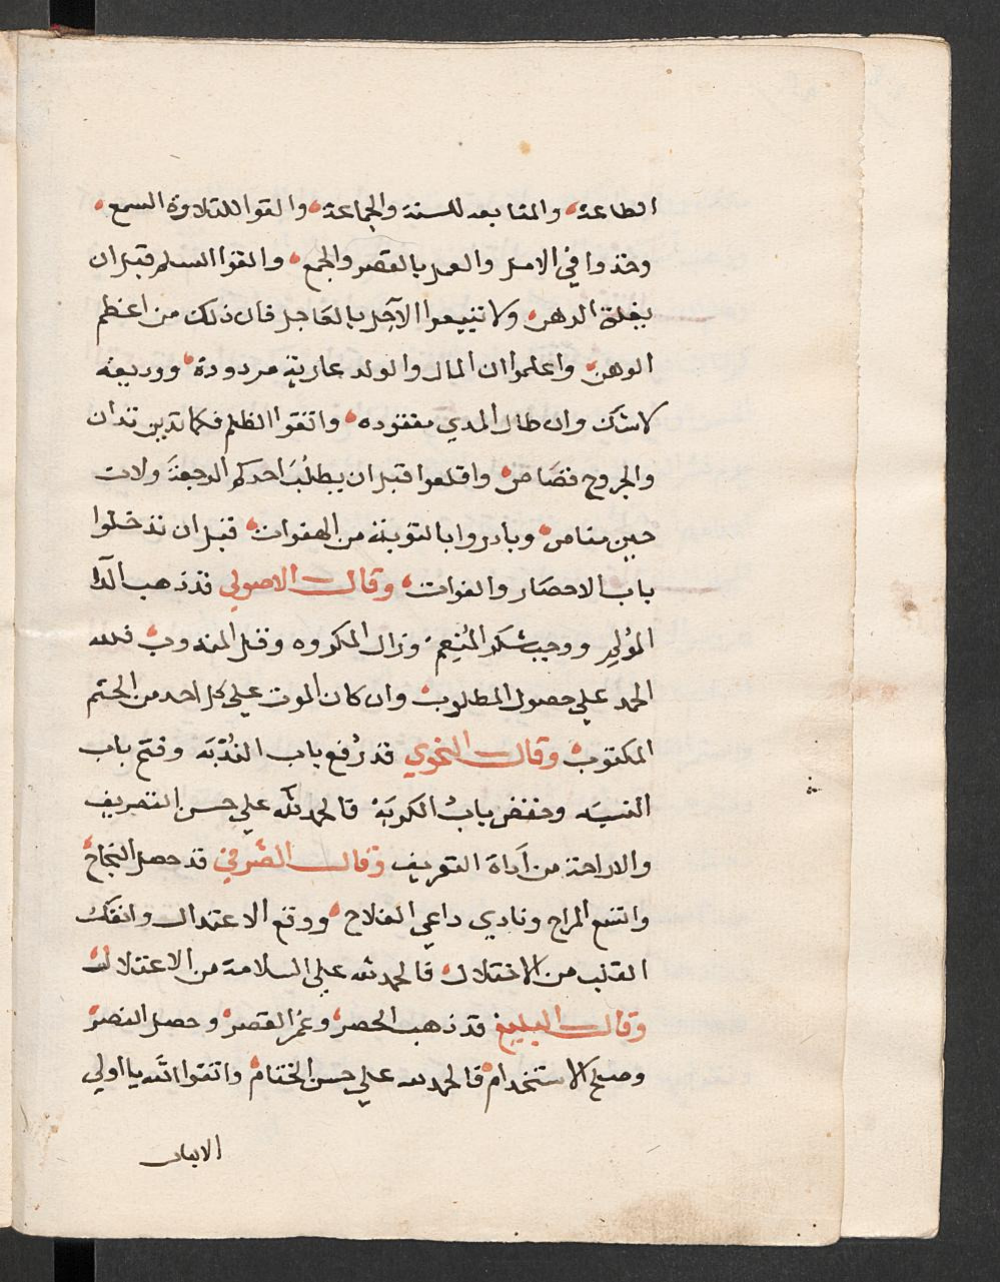 الطاعة والمتابعه للسنة والجماعة والقوا للتلاوة السمع
وخذوا في الامل والعمل بالقصر والجمع والقوا السلم قبل ان
يغلق الرهن ولا تبيعوا الآجل بالعاجل فان ذلك من اعظم
الوهن واعلموا ان المال والولد عارية مردودة ووديعة
لا شك وان طال المدي مفقوده واتقوا الظلم فكما تدين تدان
والجروح قصَاص واقلعوا قبل ان يطلُبَ احدكم الرجعةَ ولات
حين مناص وبادروا بالتوبة من الهفوات قبل ان تدخلوا
باب الاحصَار والفوات وقال الاصولي قد ذهب
المؤلم ووجب شكر المُنعِم وزال المكروه وفعل المندوب فلله
الحمد علي حصول المطلوب وان كان الموت علي كل احد من الحتم
المكتوب وقال النحوي قد رُفع باب النُدْبَه وفتح باب
النسبَه وخفض بابُ الكربَة فالحمد لله علي حسن التصريف
والاراحة من اَداة التعريف وقال الصّرفي قد حصل النجاح
واتسع المراح ونادي داعي الفلاح ووقع الاعتدال وانفك
القلب من الاختلال فالحمد لله علي السلامة من الاعتلال
وقال البليغ قد ذهب الحصر وعُمر القصر وحصل النصر
وصلح الاستخدام فالحمد لله علي حسن الختام واتقوا الله يا اولي
الالباب